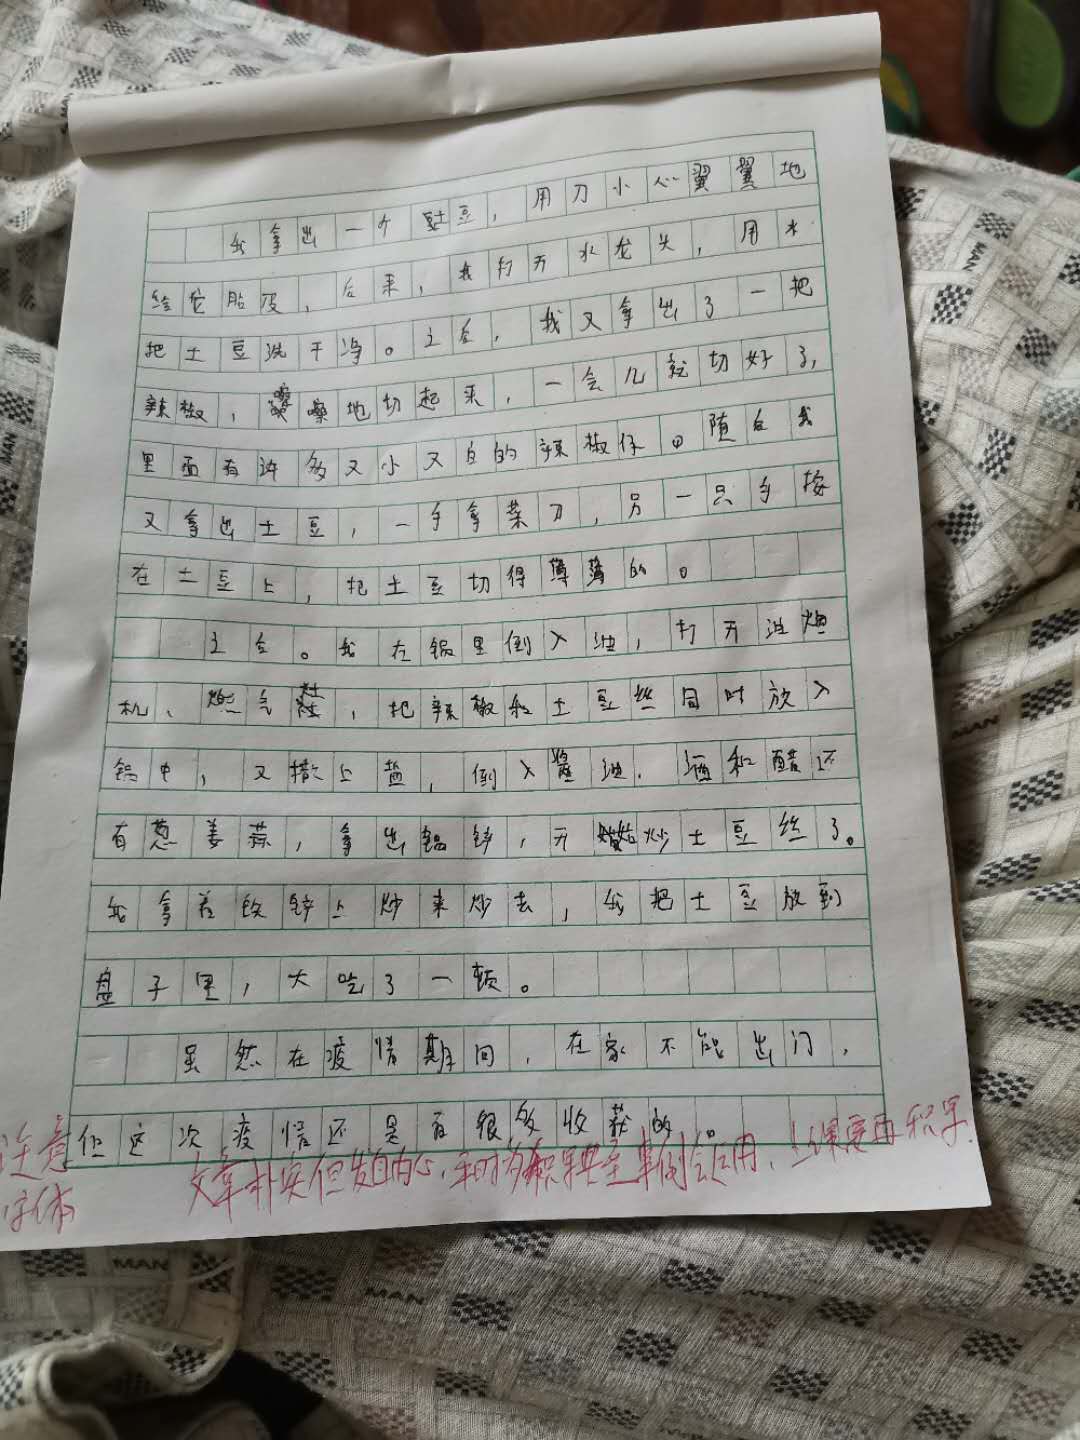 我拿出一个土豆，用刀小心翼翼地
给它脱皮，后来，我打开水龙头，用水
把土豆洗干净。之后，我又拿出了一把
辣椒，嚓嚓地切起来，一会儿就切好了，
里面有许多又小又白的辣椒仔。随后我
又拿出土豆，一手拿菜刀，另一只手按
在土豆上，把土豆切得薄薄的。
之后。我在锅里倒入油，打开油烟
机、燃气灶，把辣椒和土豆丝同时放入
锅中，又撒上盐，倒入酱油．酒和醋还
有葱姜蒜，拿出锅铲，开始炒土豆丝了。
我拿着铁铲上炒来炒去，我把土豆放到
盘子里，大吃了一顿。
虽然在疫情期间，在家不能出门，
但这次疫情还是有很多收获的。
注意
字体
文章朴实但发自内心，平时多积累 ，上课要再积字．
MAN
MAN
MAN
MAN